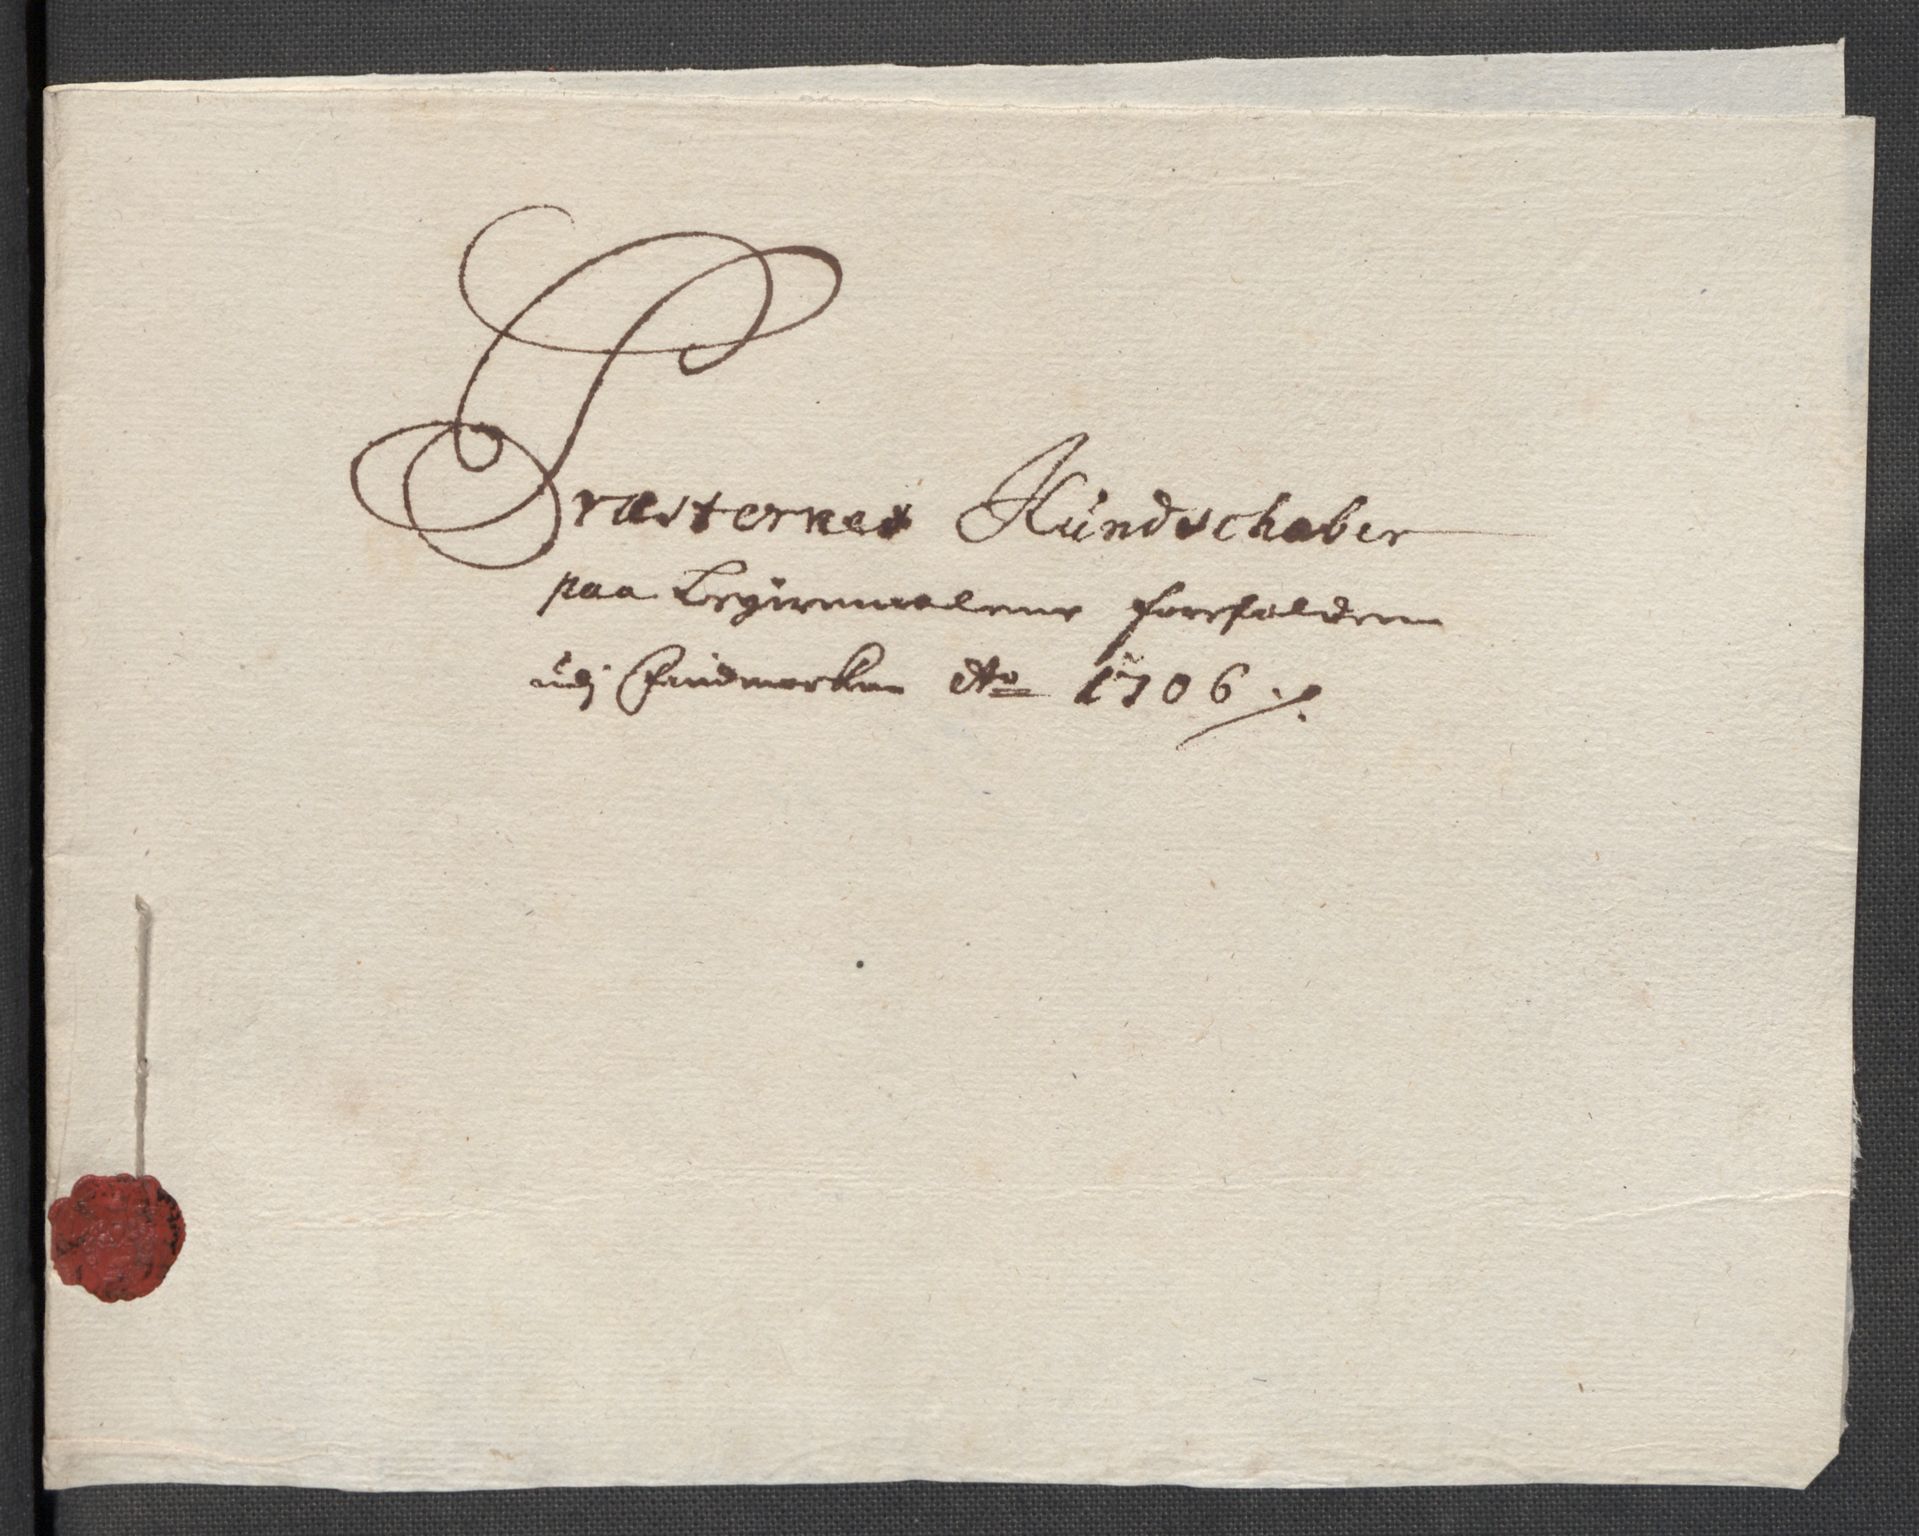 Præsternes Kundschaber
paa Leyermaalene forefalden
udj Findmarken Ao 1706 ./.